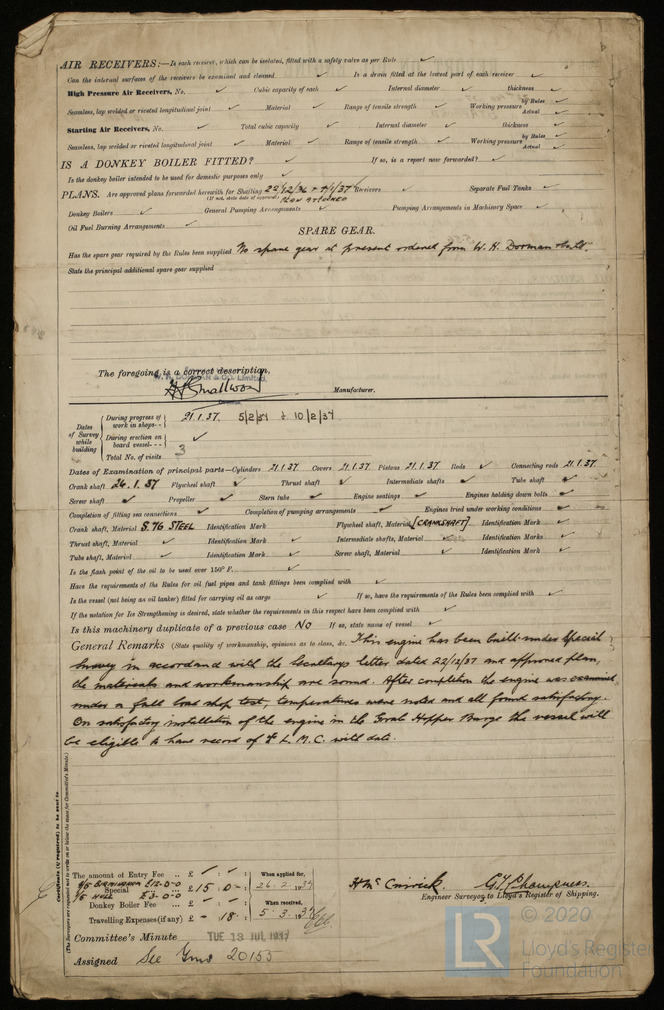 AIR RECEIVERS:—Is each receiver, which can be isolated, fitted with a safety valve as per Rule ✓
Can the internal surfaces of the receivers be examined and cleaned ✓ Is a drain fitted at the lowest part of each receiver ✓
High Pressure Air Receivers, No. ✓ Cubic capacity of each ✓ Internal diameter ✓ thickness ✓
Seamless, lap welded or riveted longitudinal joint ✓ Material ✓ Range of tensile strength ✓ Working pressure by Rules ✓ Actual ✓
Starting Air Receivers, No. ✓ Total cubic capacity ✓ Internal diameter ✓ thickness ✓
Seamless, lap welded or riveted longitudinal joint ✓ Material ✓ Range of tensile strength ✓ Working pressure by Rules ✓ Actual ✓
IS A DONKEY BOILER FITTED? ✓ If so, is a report now forwarded? ✓
Is the donkey boiler intended to be used for domestic purposes only ✓
PLANS. Are approved plans forwarded herewith for Shafting 22/12/36 + 4/1/37 Receivers ✓ Separate Fuel Tanks ✓
(If not, state date of approval) Plan attached
Donkey Boilers ✓ General Pumping Arrangements ✓ Pumping Arrangements in Machinery Space ✓
Oil Fuel Burning Arrangements ✓
SPARE GEAR.
Has the spare gear required by the Rules been supplied No spare gear at present ordered from W. H. Dorman & Co Ltd.
State the principal additional spare gear supplied
The foregoing is a correct description,
W. H. DORMAN & CO. Limited.
Smallwood
Director.
Manufacturer.
Dates of Survey while building
During progress of work in shops-- 21.1.37. 5/2/37 & 10/2/37
During erection on board vessel--- ✓
Total No. of visits 3
Dates of Examination of principal parts—Cylinders 21.1.37 Covers 21.1.37 Pistons 21.1.37 Rods ✓ Connecting rods 21.1.37.
Crank shaft 21.1.37 Flywheel shaft ✓ Thrust shaft ✓ Intermediate shafts ✓ Tube shaft ✓
Screw shaft ✓ Propeller ✓ Stern tube ✓ Engine seatings ✓ Engines holding down bolts ✓
Completion of fitting sea connections ✓ Completion of pumping arrangements ✓ Engines tried under working conditions ✓
Crank shaft, Material S.76 STEEL Identification Mark Flywheel shaft, Material [CRANKSHAFT] Identification Mark ✓
Thrust shaft, Material ✓ Identification Mark ✓ Intermediate shafts, Material ✓ Identification Marks ✓
Tube shaft, Material ✓ Identification Mark ✓ Screw shaft, Material ✓ Identification Mark ✓
Is the flash point of the oil to be used over 150° F. ✓
Have the requirements of the Rules for oil fuel pipes and tank fittings been complied with ✓
Is the vessel (not being an oil tanker) fitted for carrying oil as cargo ✓ If so, have the requirements of the Rules been complied with ✓
If the notation for Ice Strengthening is desired, state whether the requirements in this respect have been complied with ✓
Is this machinery duplicate of a previous case NO If so, state name of vessel ✓
General Remarks (State quality of workmanship, opinions as to class, &c. This engine has been built under Special
Survey in accordance with the Secretarys letter dated 22/12/37 and approved plan,
the materials and workmanship are sound. After completion the engine was examined
under a full load shop test, temperatures were noted and all found satisfactory.
On satisfactory installation of the engine in the Hopper Barge the vessel will
be eligible to have record of + L M C. with date.
Certificate (if required) to be sent to
(The Surveyors are requested not to write on or below the space for Committee's Minute.)
The amount of Entry Fee .. £ - : - :
4/5 BIRMINGHAM £12-0-0
Special ... £ 15 . 0 - :
1/5 HULL £3-0-0
Donkey Boiler Fee ... £ - : - :
Travelling Expenses (if any) £ - : 18 :
When applied for, 26.2.1937
When received, 5.3.1937
G. T. Champness.
Engineer Surveyor to Lloyd's Register of Shipping.
Committee's Minute TUE 13 JUL 1937
Assigned See 20153
© 2020
LR
Lloyd's Register
Foundation